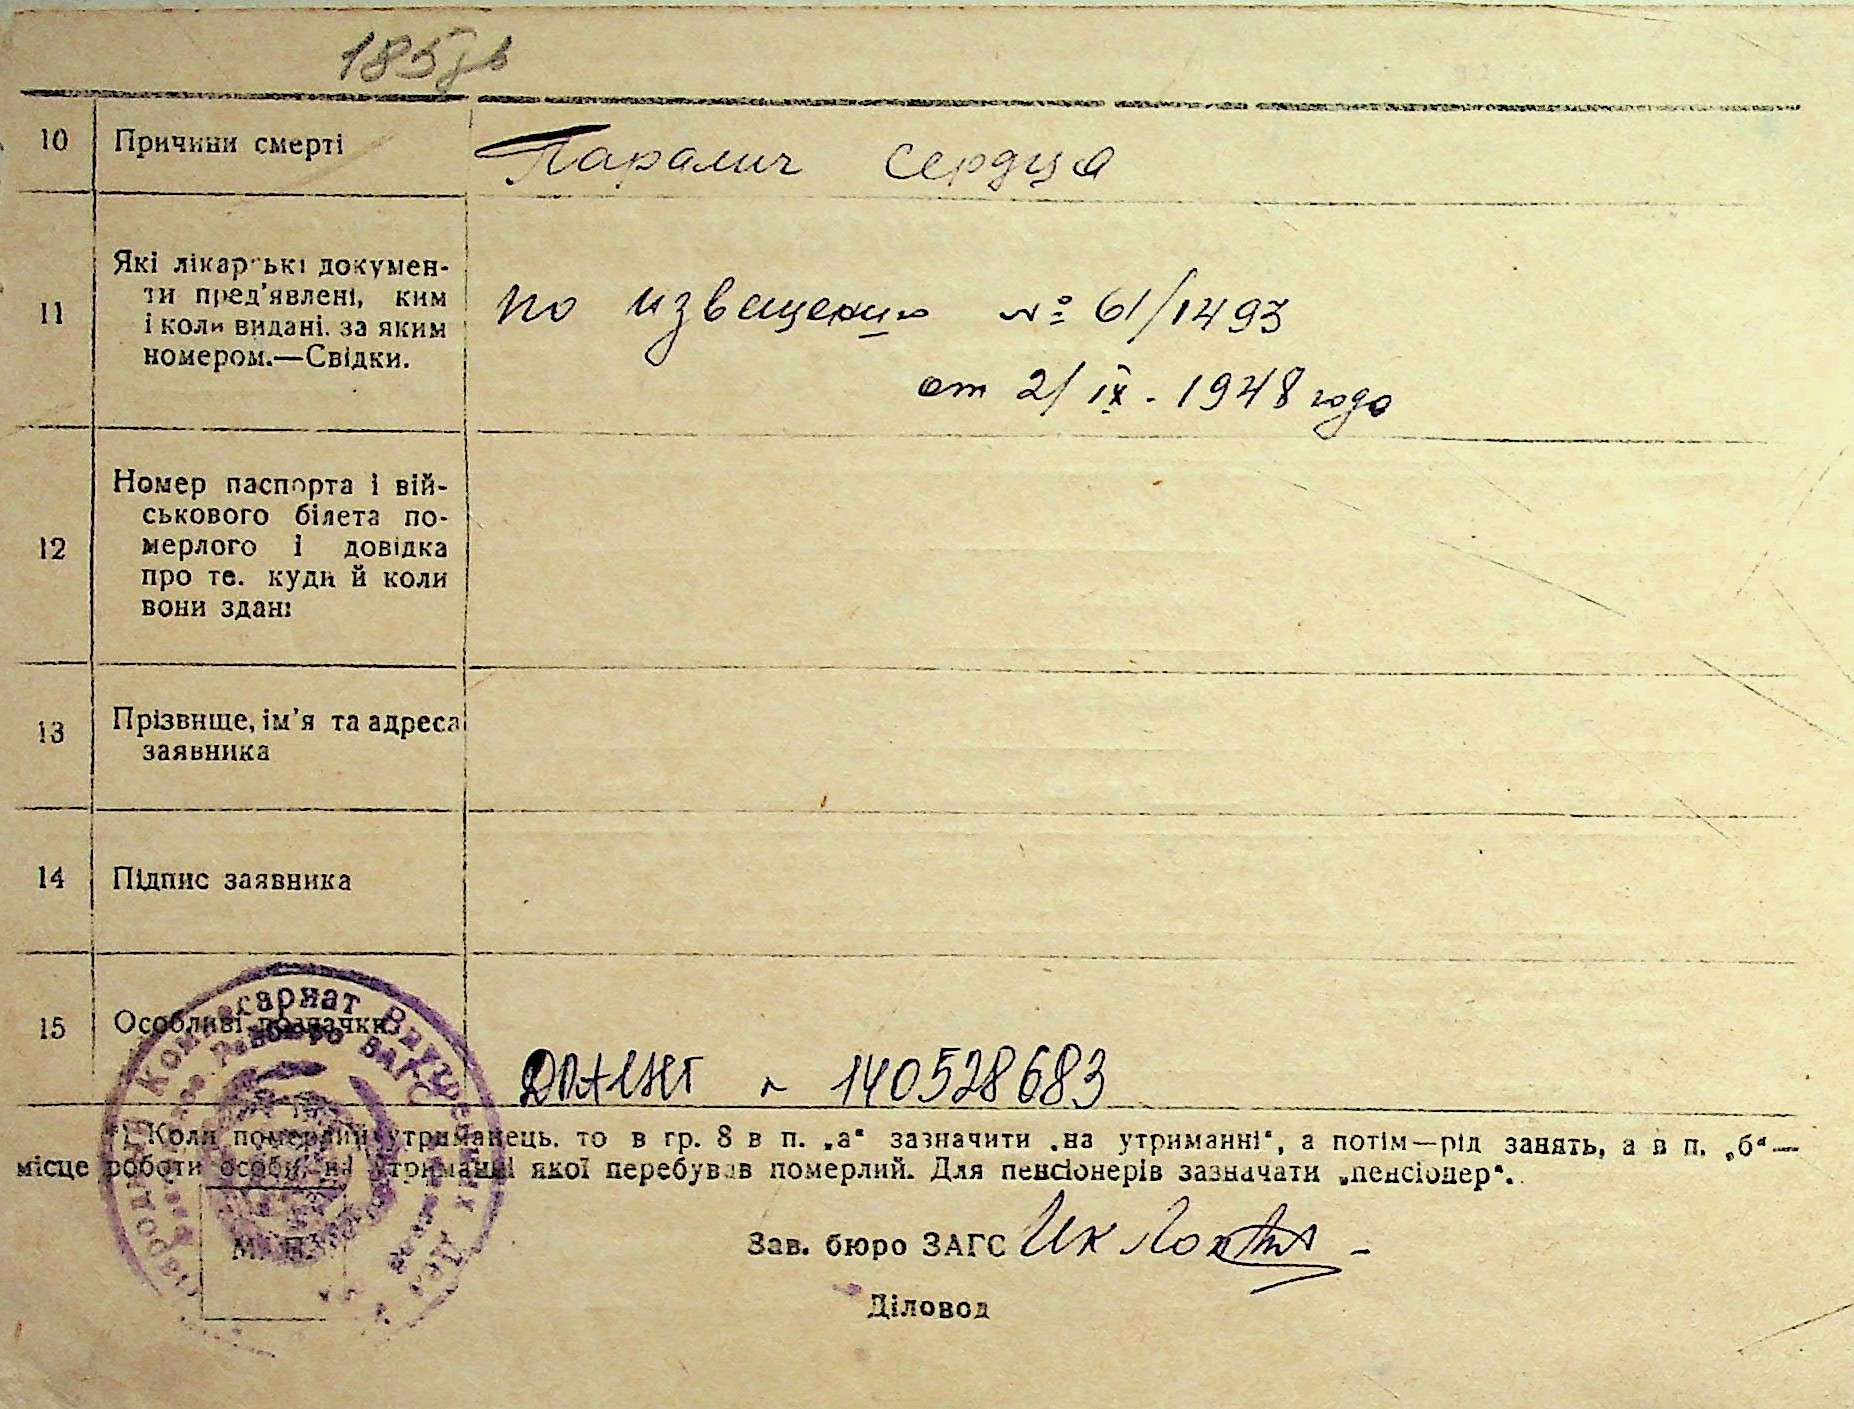 185
10 Причини смерті Паралич сердца
Які лікарські докумен-
ти пред'явлені, ким
11 і коли видані. за яким по извещению № 61/1493
номером.—Свідки.
от 2/IX. 1948 года
Номер паспорта і вій-
ськового білета по-
12 мерлого і довідка
про те. куди й коли
вони здані
13 Прізвище, ім'я та адреса
заявника
14 Підпис заявника
15 Особливі позначки
140528683
*) Коли померлий утриманець. то в гр. 8 в п. „а“ зазначити „на утриманні“, а потім—рід занять, а в п. „б“—
місце роботи особи, на утриманні якої перебував померлий. Для пенсіонерів зазначати „пенсіонер“.
М. П.
Зав. бюро ЗАГС
Діловод
Народний Комісаріат Внутренних Дел
бюро ЗАГС